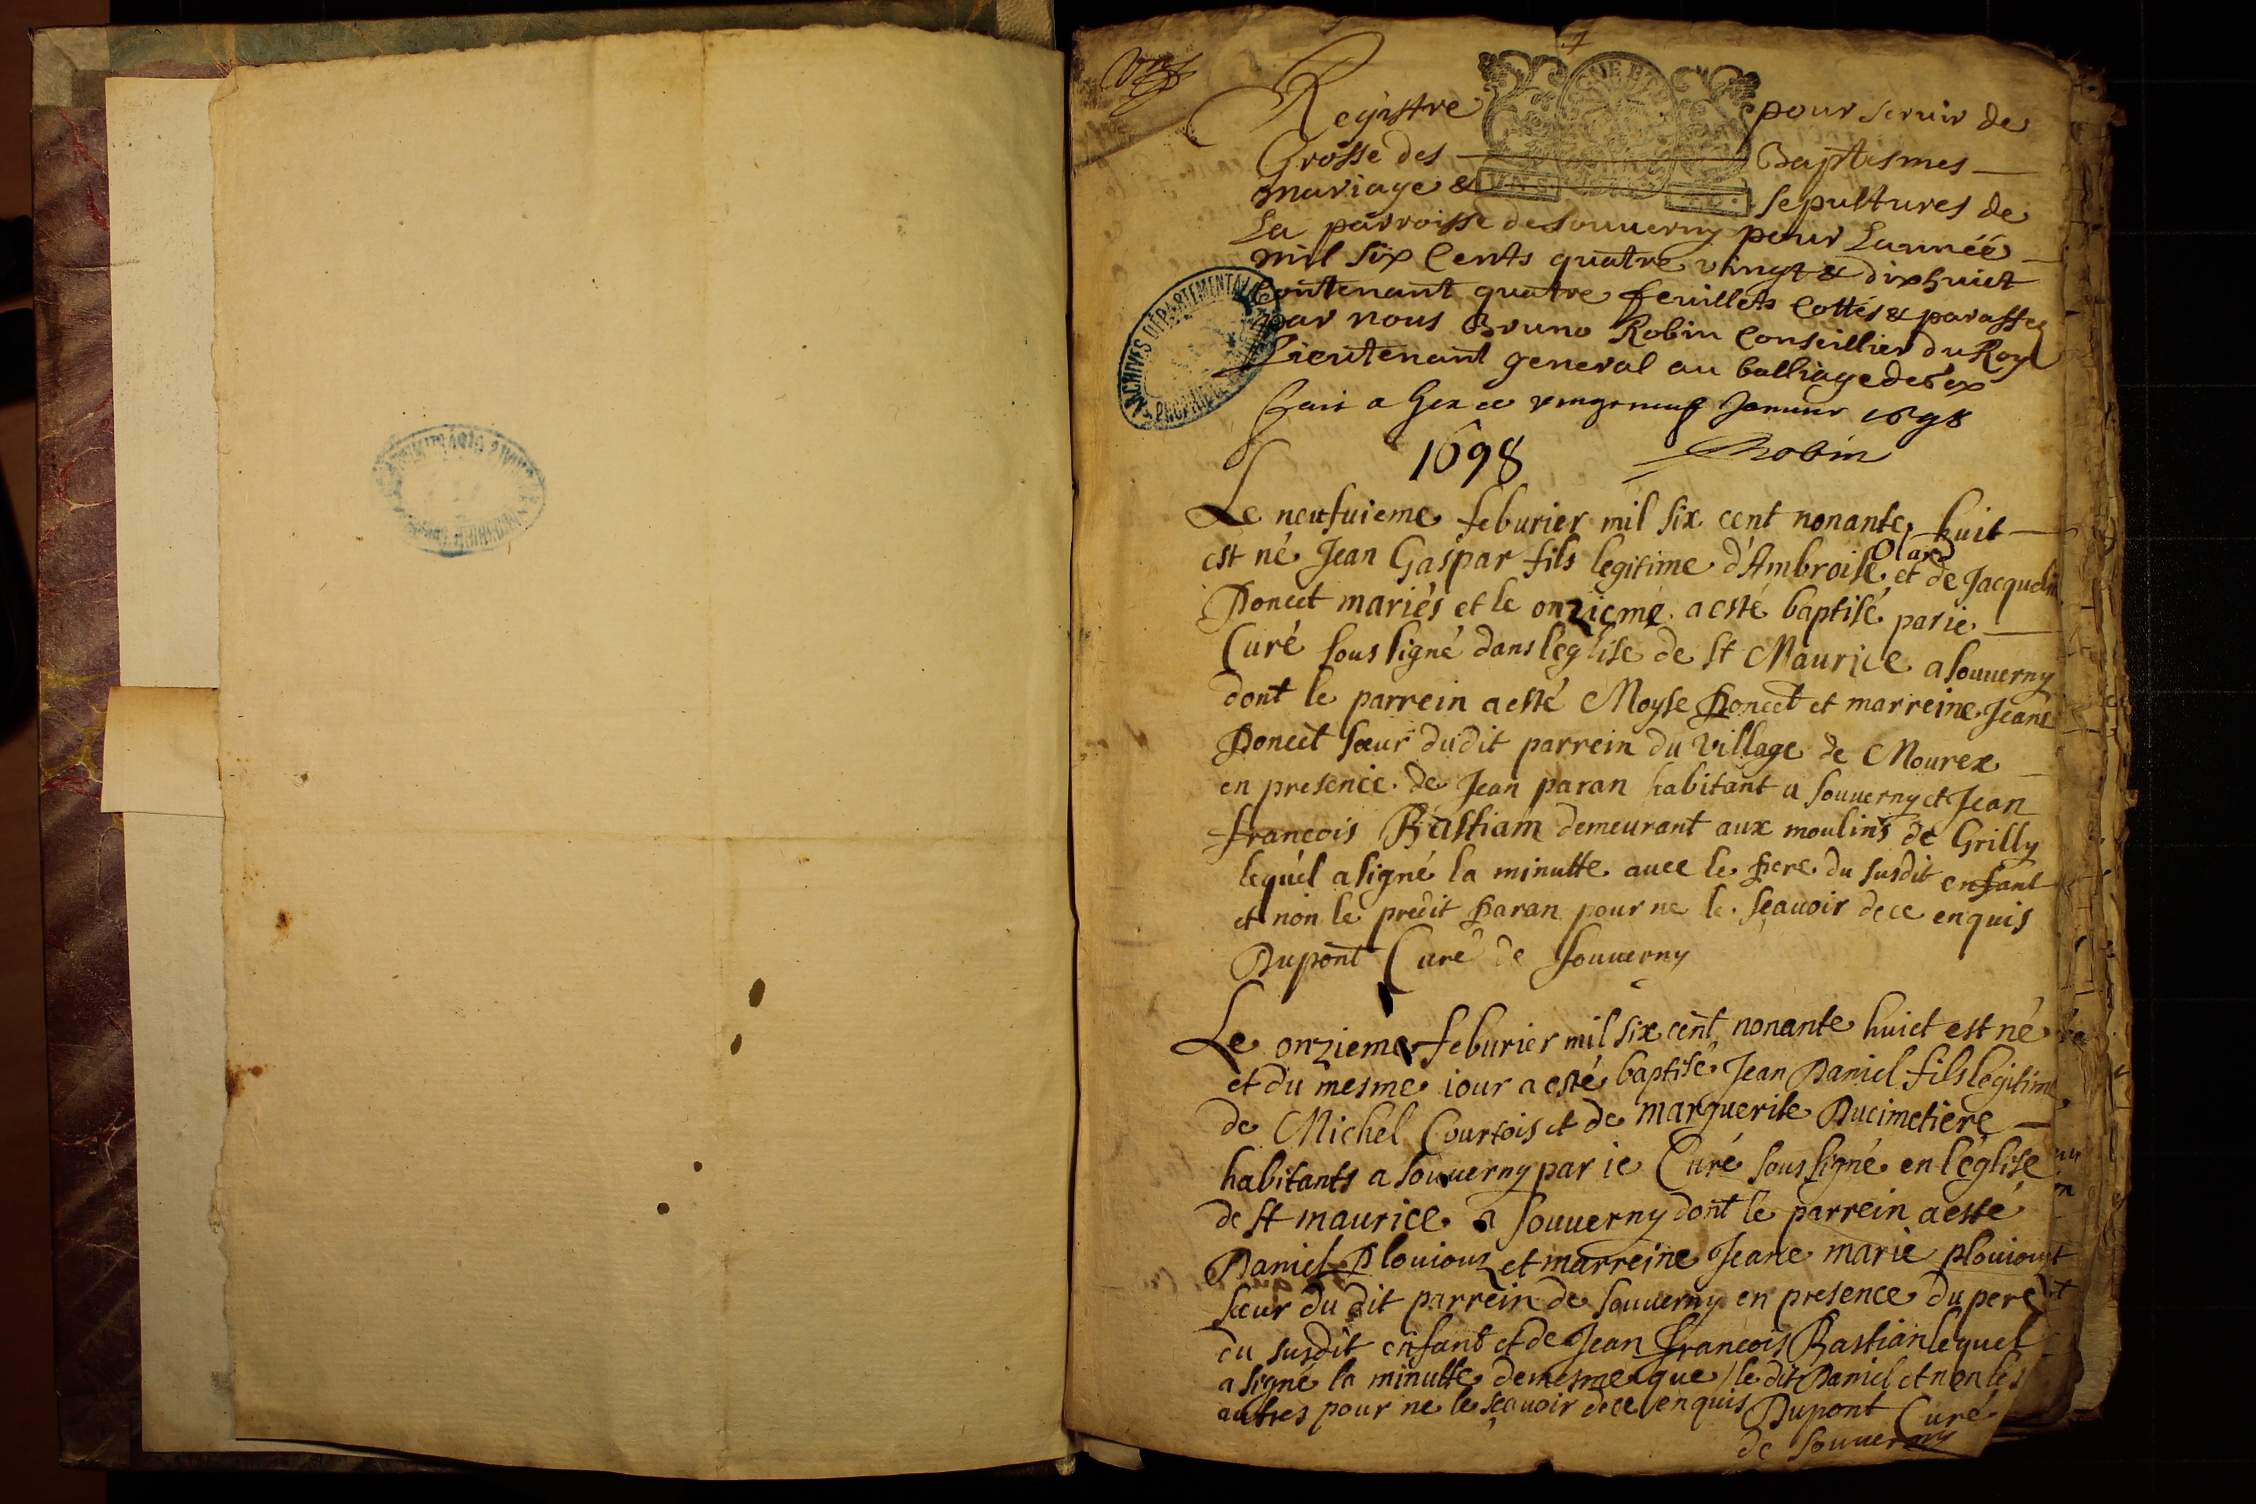 Registre pour seruir de
Grosse des Baptismes
mariage & sepultures de
La parroisse de souuerny pour Lannéé
mil six Cents quatre vingt & dixhuict
Contenant quatre feuillets Cottés & paraffes
par nous Bruno Robin Conseillier du Roy
Lieutenant general au balliage de Gex
fait a Gex ce vingt neuf Januier 1698
Robin
1698
Le neufuieme feburier mil six cent nonante huit
est né Jean Gaspar fils legitime d'Ambroise Olard et de Jacqueline
Poncet mariés et le onzieme a esté baptisé par ie
Curé sous signé dans leglise de St Maurice a souuerny
dont le parrein a esté Moyse Poncet et marreine Jeane
Poncet sœur dudit parrein du village de Mourex
en presence de Jean paran habitant a souuerny et Jean
francois Bastiam demeurant aux moulins de Grilly
lequel a signé la minutte auec le pere du susdit enfant
et non le predit paran pour ne le sçauoir de ce enquis
Dupont Curé de souuerny
Le onzieme feburier mil six cent nonante huict est né
et du mesme iour a esté baptisé Jean Daniel fils legitime
de Michel Courtois et de marguerite Ducimetiere
habitants a souuerny par ie Curé sous signé en l'eglise
de St maurice a souuerny dont le parrein a esté
Daniel Plouiouz et marreine Jeane marie plouiout
sœur du dit parrein de souuerny en presence du pere
du susdit enfant et de Jean francois Bastian lequel
a signé la minutte demesme que le dit Daniel et non les
autres pour ne le sçauoir de ce enquis Dupont Curé
de souuerny